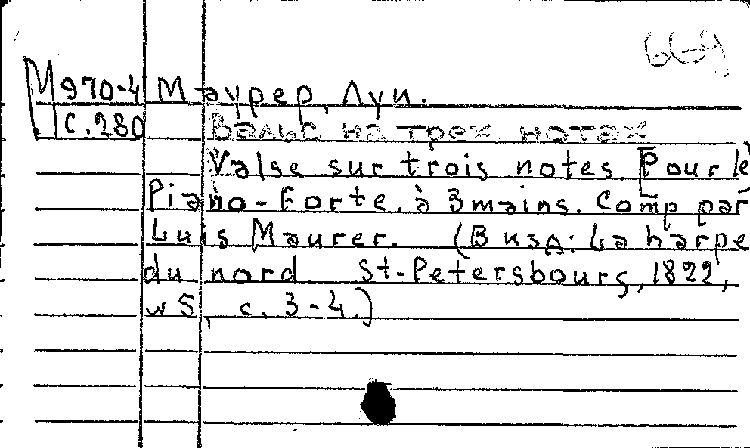 М970-4 Маурер, Луи.
с.280 Вальс на трех нотах
Valse sur trois notes. Pour le
Piano-Forte, à 3 mains. Comp par
Luis Maurer. (В изд: La harpe
du nord St-Petersbourg, 1822,
№5, с. 3-4.)